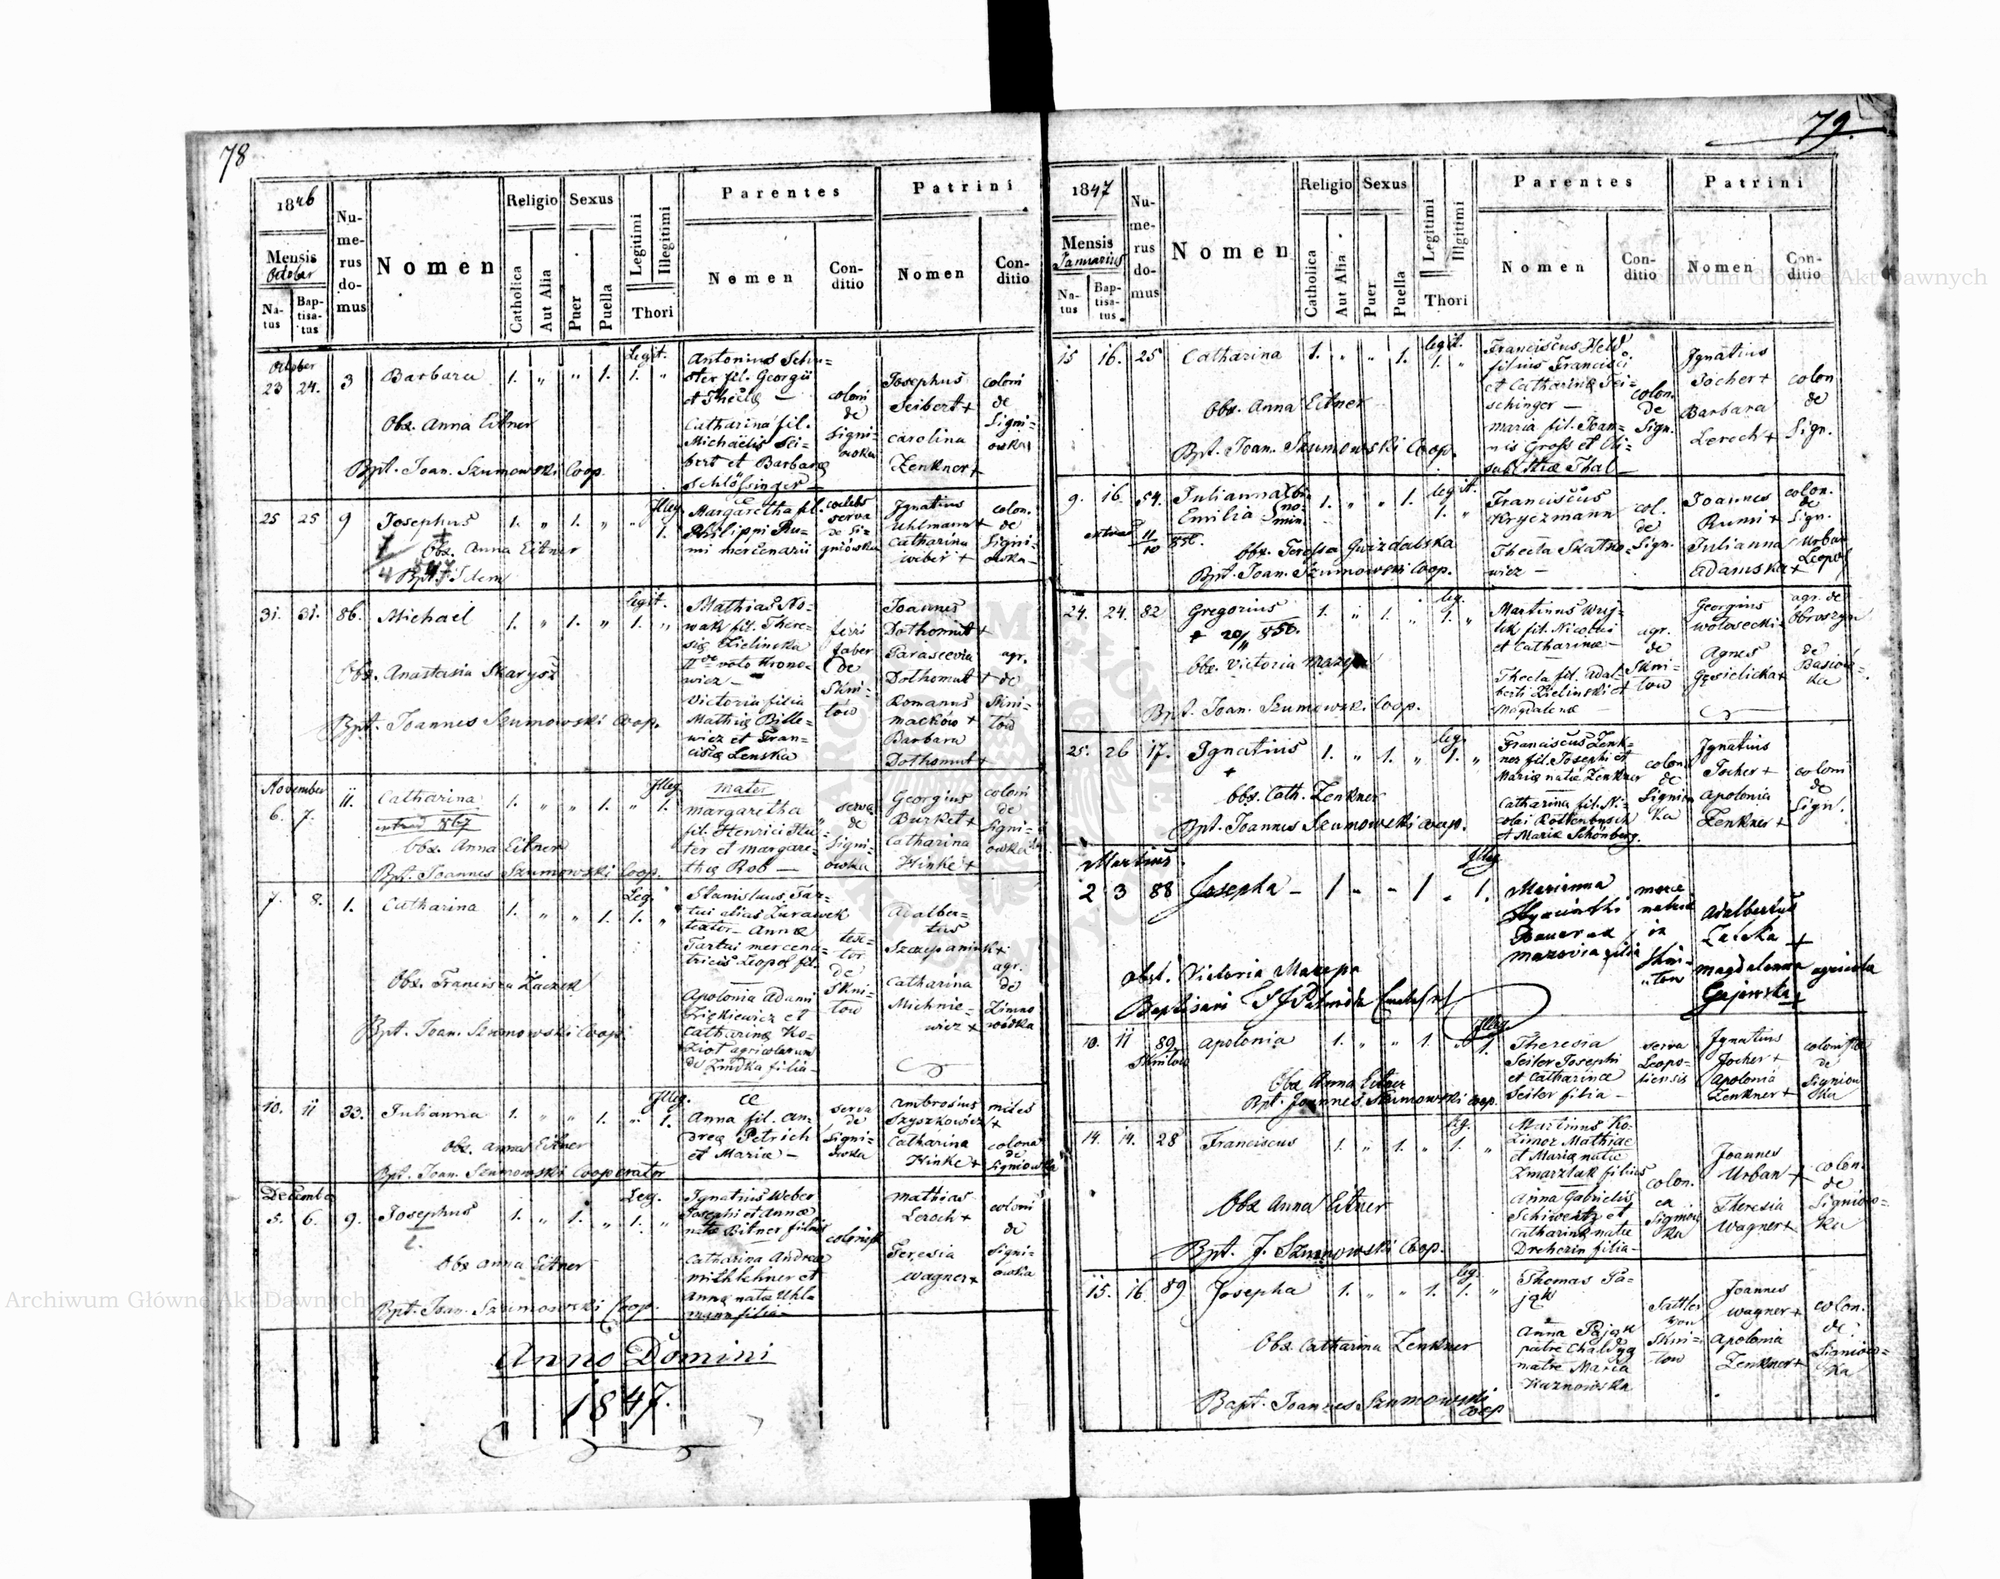 78
1846
Mensis
October
Natus
Baptisatus
Numerus domus
Nomen
Religio
Catholica
Aut Alia
Sexus
Puer
Puella
Legitimi
Illegitimi
Thori
Parentes
Nomen
Conditio
Patrini
Nomen
Conditio
October
23 24. 3 Barbara 1. „ „ 1. Legit. 1. „
Obs. Anna Eitner
Bpt. Joan. Szumowski Coop.
Antonius Schu-
ster fil. Georgii
et Theclę —
Catharina fil.
Michaelis Sei-
bert et Barbarę
coloni
de
Signi-
owka
Josephus
Seibert +
carolina
Zenkner +
coloni
de
Signi-
owka
25 25 9 Josephus 1. „ 1. „ „ Illeg. 1.
Obs. Anna Eitner
Bpt. Idem
Margaretha fil.
Philippi Ru-
mi mercenarii
caelebs
serva
de Si-
gniówka
Ignatius
Uhlmann +
Catharina
Weber +
colon.
de
Signi-
owka —
31. 31. 86. Michael 1. „ 1. „ legit. 1. „
Obs. Anastasia Skarysz
Bpt. Joannes Szumowski Coop.
Mathias No-
wak fil. There-
się Zielinska
wicz —
Victoria filia
Mathię Bille-
wicz et Fran-
ciscę Lenska
ferri
faber
de
Skni-
łów
Joannes
Dothomut +
Parascevia
Dothomut +
Romanus
Maćków +
Barbara
Dothomut +
agr.
de
Skni-
tow
November
6. 7. 11. Catharina 1. „ „ 1. „ Illeg. 1.
Obs. Anna Eitner
Bpt. Joannes Szumowski Coop.
mater
Margaretha
et Margare-
thę Rob —
serva
de
Signi-
owka
Georgius
Burket +
Catharina
Hinke +
coloni
de
Signi-
owka
7. 8. 1. Catharina 1. „ „ 1. Leg. 1. „
Obs. Francisca Zaczek
Bpt. Joan. Szumowski Coop.
Stanislaus Tar-
tai alias Zurawek
textor — Annę
Tartai mercena-
tricis Leopol fil.
Apolonia Adami
Ziękiewicz et
Catharinę Ko-
ziot agricolarum
de Zimdka filia —
tex-
tor
de
Skni-
tow
Adalber-
tus
Szczepaniuk +
Catharina
Michnie-
wicz +
agr.
de
Zimno
wodka
10. 11 33. Julianna 1. „ „ 1. „ Illeg. 1.
Obs. Anna Eitner
Bpt. Joan. Szumowski Cooperator
Anna fil. An-
dreę Petrich
et Marię —
serva
de
Signi-
owka
Ambrosius
Szyszkowicz +
Catharina
Hinke +
miles
colona
de
Signiowka
December
5. 6. 9. Josephus 1. „ 1. „ Leg. 1. „
Obs Anna Eitner
Bpt. Joan. Szumowski Coop.
Ignatius Weber
Josephi et Annę
natę Bitner filius
Catharina Andreę
Mithlehner et
Annę natę Uhl-
mann filia —
colonist
Mathias
Leroch +
Teresia
Wagner +
coloni
de
Signi-
owka
Anno Domini
1847.
79.
1847
Mensis
Januarius
Natus
Baptisatus
Numerus domus
Nomen
Religio
Catholica
Aut Alia
Sexus
Puer
Puella
Legitimi
Illgitimi
Thori
Parentes
Nomen
Conditio
Patrini
Nomen
Conditio
15 16. 25 Catharina 1. „ „ 1. legit. 1. „
Obs. Anna Eitner
Bpt. Joan. Szumowski Coop.
Franciscus Held
filius Francisci
et Catharinę Tei-
schinger —
Maria fil. Joan-
nis Gross et Eli-
sabethę Thal —
colon.
de
Sign.
Ignatius
Jocher +
Barbara
Leroch +
colon
de
Sign.
9. 16. 54. Julianna
Emilia 1. „ „ 1. legit. 1. „
Obs. Teressa Gwizdalska
Bpt. Joan. Szumowski Coop.
Franciscus
Kryczmann
Thecla Skatko-
wicz —
col.
de
Sign.
Joannes
Rumi +
Julianna
Adamska +
colon.
de
Sign.
24. 24. 82 Gregorius 1. „ 1. „ leg. 1. „
+ 20/11 856.
Obs. Victoria Mazepa
Bpt. Joan. Szumowski Coop.
Martinus Wuj-
tik fil. Nicolai
et Catharinę —
Thecla fil. Adal-
berti Zielinski et
Magdalenę —
agr.
de
Skni-
tow
Georgius
Wołosecki +
Agnes
Gęsielicka +
agr. de
Obroszyn
de
Basiów-
ka
25. 26 17. Ignatius 1. „ 1. „ leg. 1. „
+
Obs. Cath. Zenkner
Bpt. Joannes Szumowski Coop.
Franciscus Zenk-
ner fil. Josephi et
Marię natę Zenkner
Catharina fil. Ni-
colai Rottenbusch
et Marię Schönberg.
colon
de
Signiow
ka
Ignatius
Jocher +
Apolonia
Zenkner +
coloni
de
Sign.
Martius
2 3 88 Josepha — 1 „ „ 1 „ Illeg. 1.
obst. Victoria Mazepa
Marianna
Hyacinthi
filia
Adalbertus
Zaczka +
Magdalenna
Gajewska +
agricola
10. 11 89 Apolonia 1. „ „ 1. „ Illeg. 1.
Skniłow
Obs Anna Eitner
Bpt. Joannes Szumowski Coop.
Theresia
Seiler Josephi
et Catharina
Seiler filia —
serva
Leopo-
liensis
Ignatius
Jocher +
Apolonia
Zenkner +
de
Signiow
ka
14. 14. 28 Franciscus 1. „ 1. „ leg. 1. „
Obs Anna Eitner
Bpt. J. Szumowski Coop.
Martinus Ko-
zimor Mathiae
et Marię natę
Zmarzlak filius
Anna Gabrielis
Schwertz et
Catharinę natę
Dreherin filia —
colon.
ex
Signiow
ka
Joannes
Urban +
Theresia
Wagner +
colon.
de
Signiow-
ka
15. 16 89 Josepha 1. „ „ 1. leg. 1. „
Obs. Catharina Zenkner
Bapt. Joannes Szumowski
Coop
Thomas Pa-
jąk
Anna Pająk
patre Chałdyg
matre Maria
Kuznowska
Sattler
von
Skni-
tow
Joannes
Wagner +
Apolonia
Zenkner +
colon.
de
Signiow-
ka
Archiwum Główne Akt Dawnych
Archiwum Główne Akt Dawnych